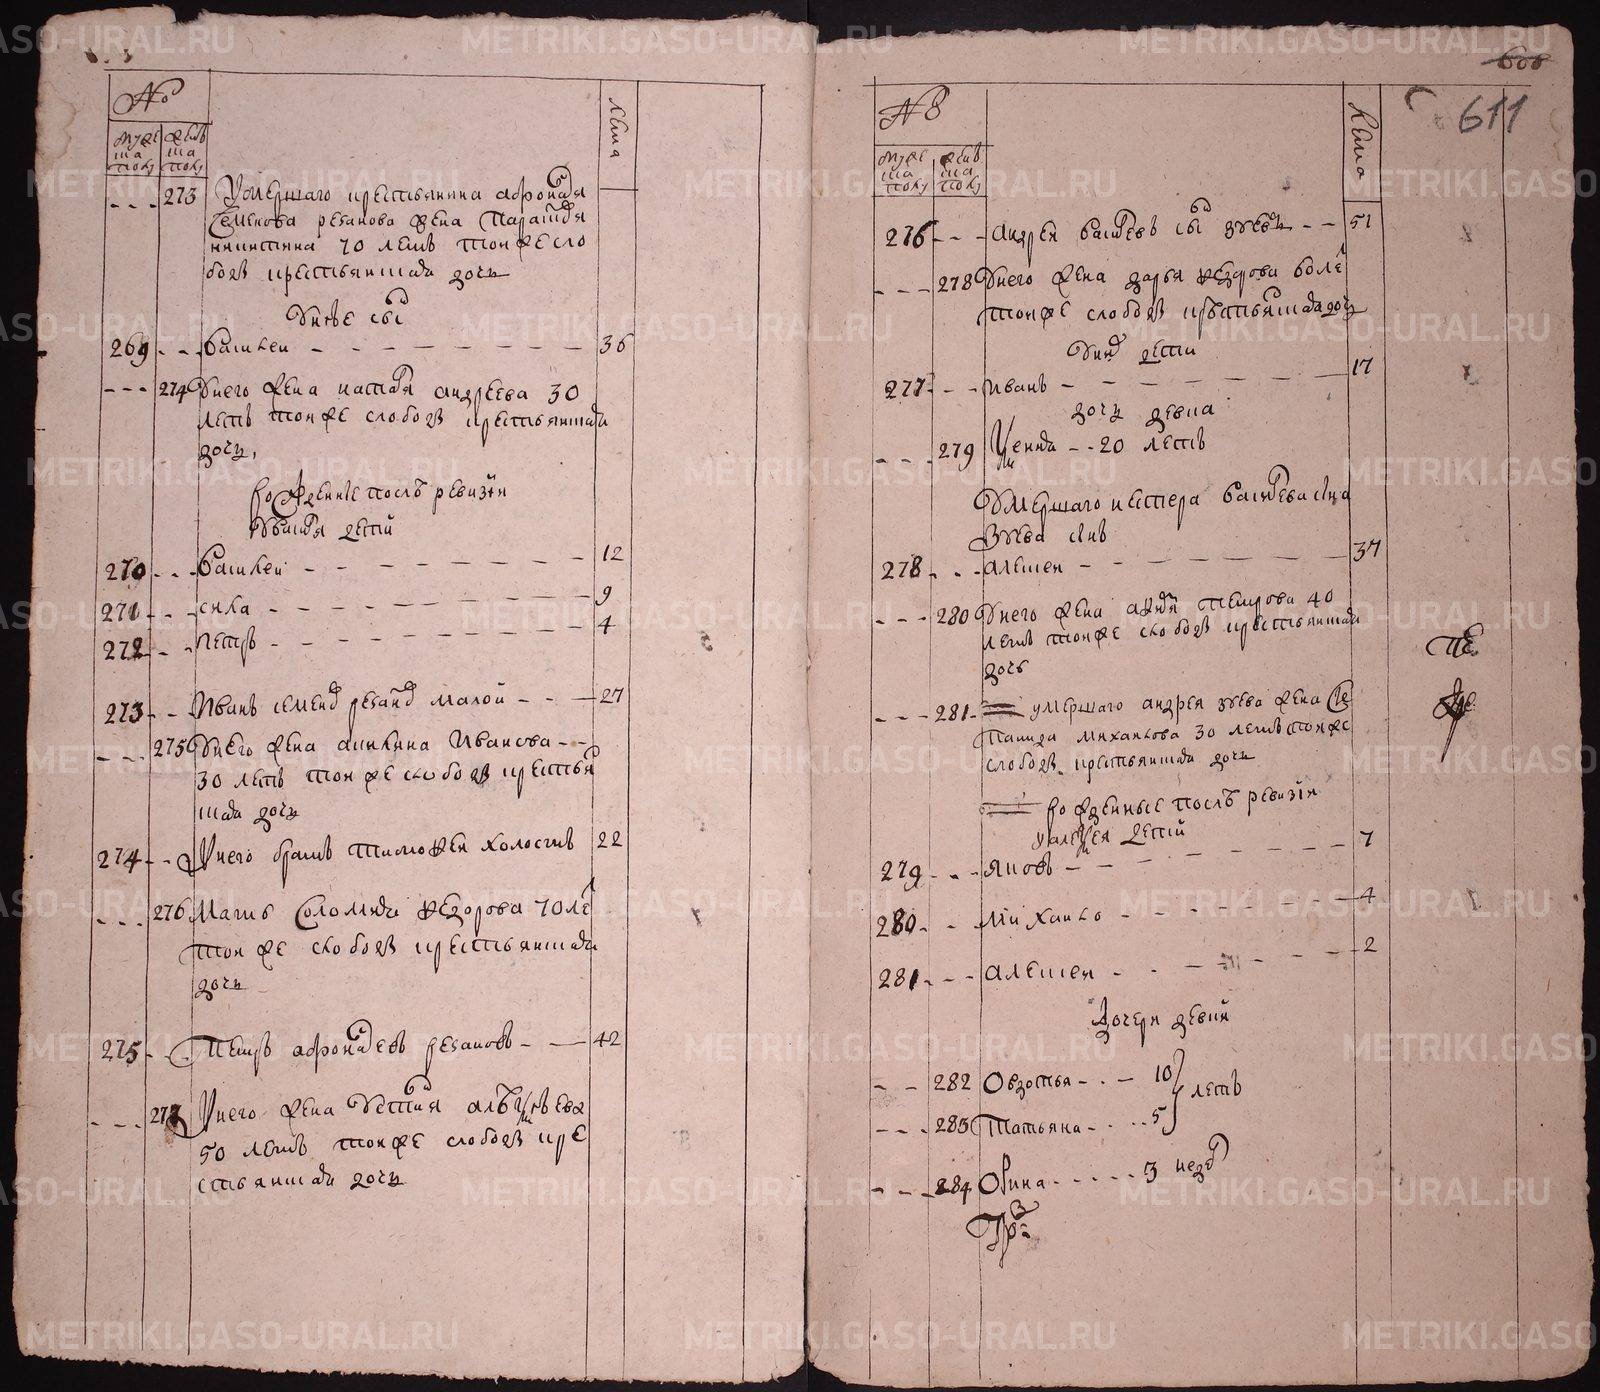 №
муже
ска
полу
женс
ка
полу
лета
273 Умершаго крестьянина афонася
Семенова резанова жена Парасковя
70 летъ тои же сло
боды крестьянская дочь
У нее сын
269 Василеи 36
274 У него жена настася андреева 30
летъ тои же слободы крестьянская
дочь
рожденные после ревизiи
У василя дети
270 Василеи 12
271 9
272 Петръ 4
273 Иванъ семенов резанов малой 27
275 У него жена Иванова
30 летъ тои же слободы крестьян
ская дочь
274 У него братъ тимофеи холостъ 22
276 Мать Соломида федорова 70 ле
тои же слободы крестьянская
дочь
275 Петръ афонасевъ резановъ 42
277 У него жена
50 летъ тои же слободы кре
стьянская дочь
606
611
№
муже
ска
полу
женс
ка
полу
лета
276 андреи васильевъ сын зуевъ 51
278 У него жена дарья федорова 60 ле
тои же слободы крестьянская дочь
У них дети
277 Иванъ 17
дочь девка
279 20 летъ
Умершаго нестера васильева сына
Зуева сынъ
278 алексеи 37
280 У него жена петрова 40
летъ тои же слободы крестьянская
дочь
281 умершаго андрея зуева жена Сте
панида михаилова 30 летъ тои же
слободы крестьянская дочь
рожденные после ревизiи
у алексея дети
279 яковъ 7
280 михаило 4
281 алексеи 2
дочери девки
282 Овдотья 10 летъ
283 Татьяна 5
284 Орина 3 недел
METRIKI.GASO-URAL.RU